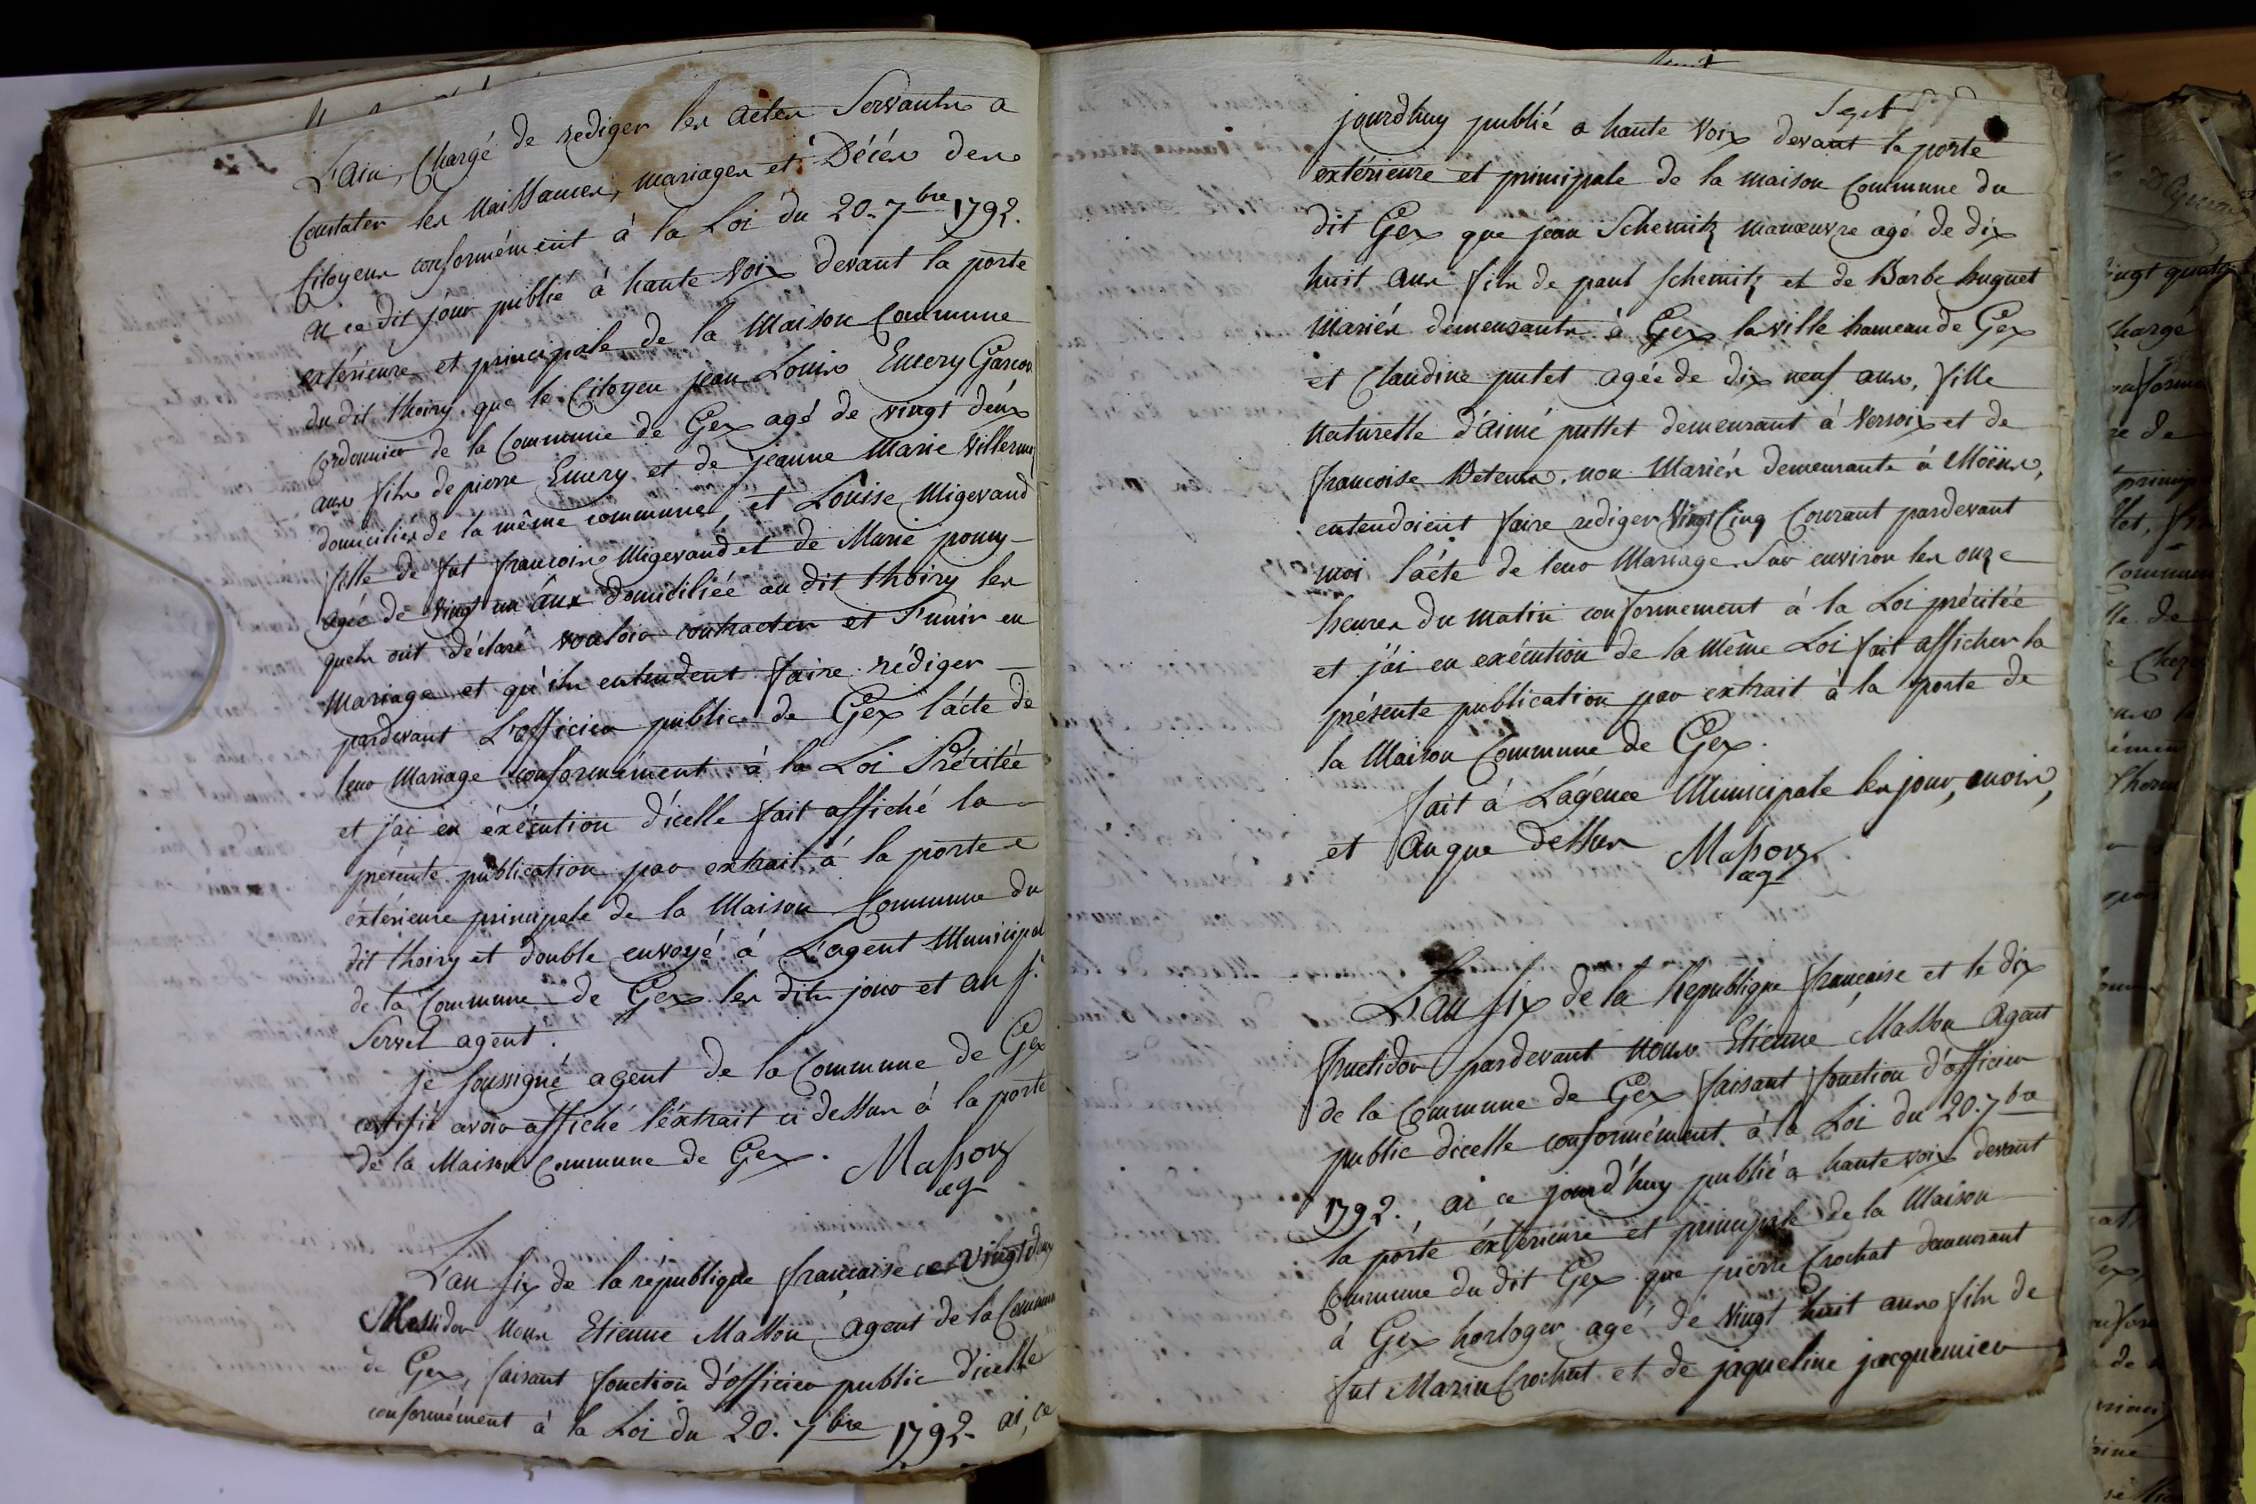 L'ain, Chargé de rediger les actes Servants a
Constater les Naissances, mariages et Décés des
Citoyens conformément à la Loi du 20. 7bre 1792.
ai ce dit jour publié à haute Voix devant la porte
extérieure et principale de la Maison Commune
du dit thoiry que le Citoyen jean Louis Emery Garçon
Cordonnier de la Commune de Gex agé de vingt deux
ans fils de pierre Emery et de jeanne Marie
domiciliés de la même commune, et Louise Migevand
fille de fut francois Migevand et de Marie
agée de vingt un ans domiciliée au dit thoiry les
quels ont déclaré vouloir contracter et S'unir en
Mariage et qu'ils entendent faire rédiger
pardevant L'officier public de Gex l'acte de
leur Mariage conformément à la Loi Précitée
et j'ai en éxécution d'icelle fait affiché la
présente publication par extrait à la porte
éxtérieure principale de la Maison Commune du
dit thoiry et double envoyé à L'agent Municipal
de la Commune de Gex les dits jour et an f.
Servet agent.
je soussigné agent de la Commune de Gex
certifie avoir affiché l'éxtrait ci dessus à la porte
de la Maison Commune de Gex. Masson
ag
L'an six de la république française ce vingt deux
Messidor Nous Etienne Masson agent de la Commune
de Gex, faisant fonction d'officier public d'icelle
conformément à la Loi du 20. 7bre 1792. ai, ce
Sept
jourdhuy publié a haute Voix devant la porte
extérieure et principale de la maison Commune du
dit Gex que jean Schemitz manœuvre agé de dix
huit ans fils de paul schemitz et de Barbe huguet
Mariés demeurants à Gex la ville hameau de Gex
et Claudine putet agée de dix neuf ans, fille
Naturelle d'aimé puttet demeurant à Versoix et de
francoise non Mariés demeurants à Moïns,
entendoient faire rediger Vingt Cinq Courant pardevant
moi l'acte de leur Mariage Sur environ les onze
heures du matin conformement à la Loi précitée
et j'ai en exécution de la Même Loi fait afficher la
présente publication par extrait à la porte de
la Maison Commune de Gex.
fait à L'agence Municipale les jour, mois,
et an que dessus Masson
ag
L'an six de la Republique française et le dix
fructidor pardevant Nous Etienne Masson Agent
de la Commune de Gex faisant fonction d'officier
public dicelle conformément à la Loi du 20. 7bre
1792. ai ce jourd'huy publié a haute voix devant
la porte éxtérieure et principale de la Maison
Commune du dit Gex que pierre Crochat demeurant
à Gex horloger agé de Vingt huit ans fils de
fut Marin Crochat et de jaqueline jacquemier